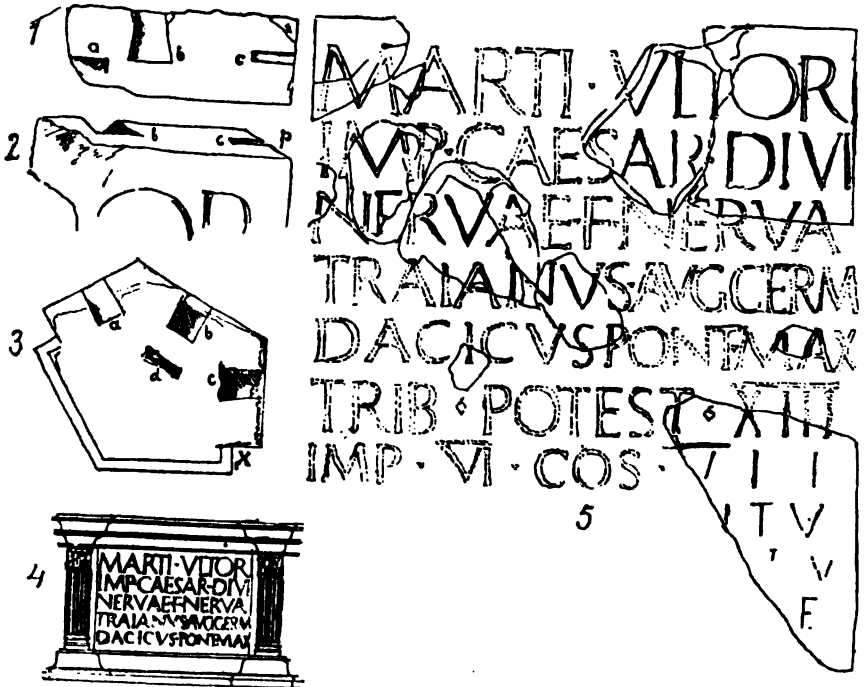 1
a
b
c
2
b
c
P
3
a
b
d
c
X
4
MARTI · VLTOR
IMP CAESAR · DIVI
NERVAE · F · NERVA
TRAIANVS AVG GERM
DACICVS · PONT MAX
MARTI · VLTOR
IMP · CAESAR · DIVI
NERVAE · F · NERVA
TRAIANVS · AVG GERM
DACICVS PONT MAX
TRIB · POTEST · XIII
IMP · VI · COS · V I I
I T V V
T V
F.
5